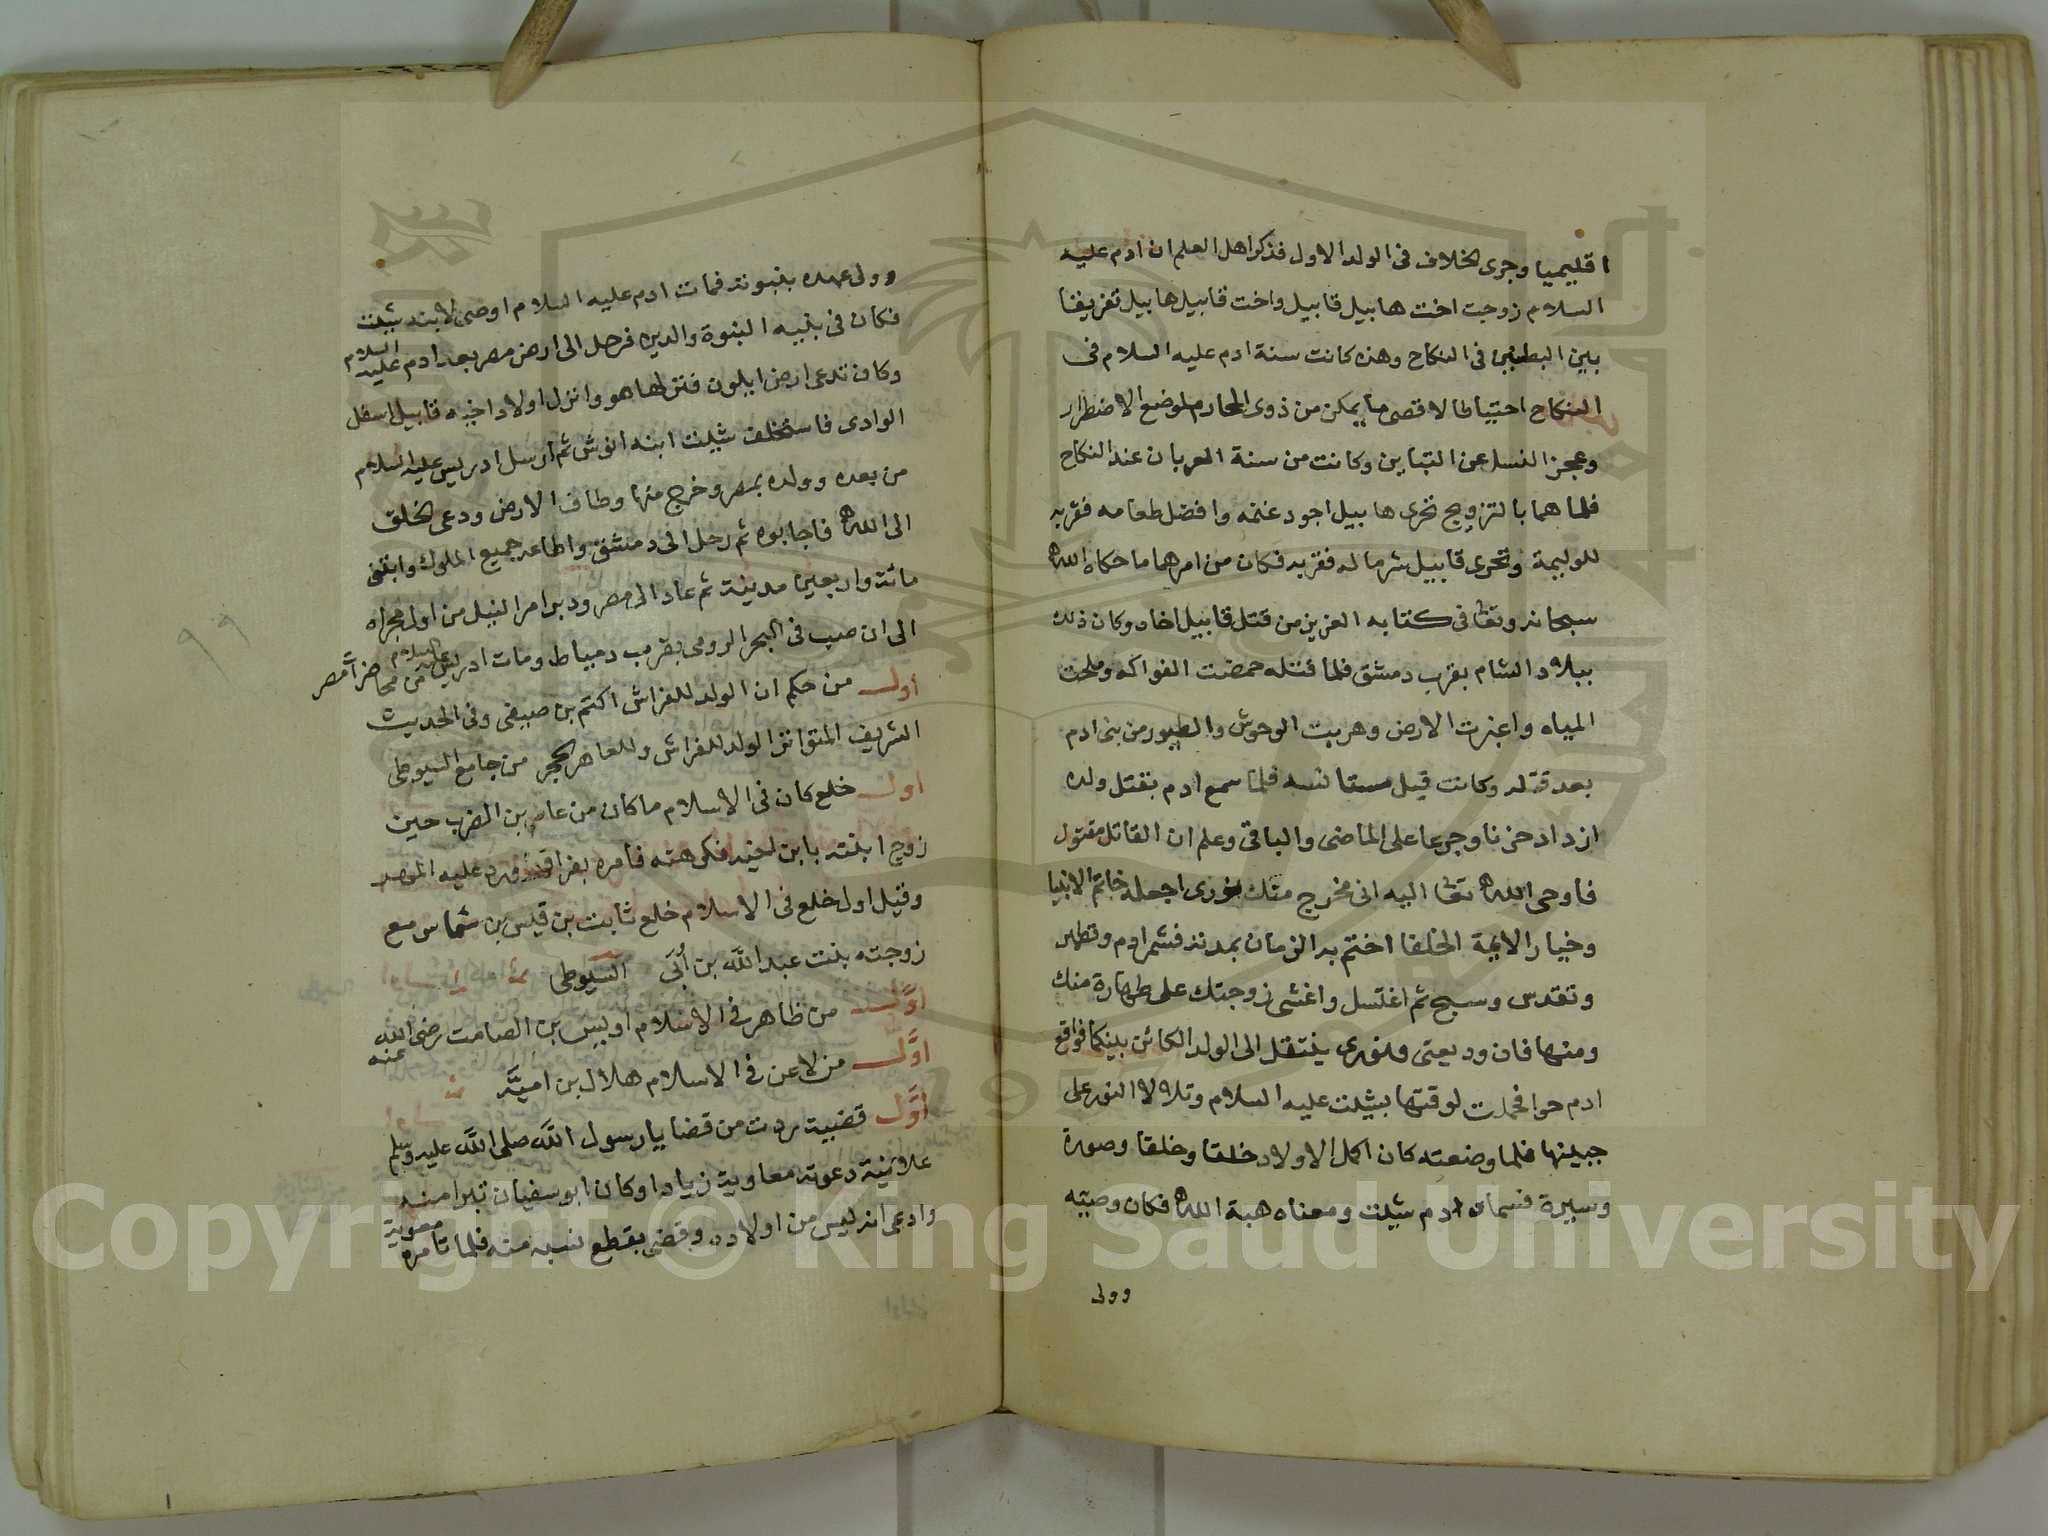 اقليميا وجرى الخلاف فى الولد الاول فذكر اهل العلم ان ادم عليه
السلام زوجت اخت هابيل قابيل واخت قابيل هابيل تفريفا
بين البطنين فى النكاح وهذه كانت سنة ادم عليه السلام فى
النكاح احتياطا لاقصى ما يمكن من ذوى المحارم لموضع الاضطرار
وعجز النسل عن التباين وكانت من سنة العربان عند النكاح
فلما هما بالتزويج تحرى هابيل اجود غنمه وافضل طعامه فقربه
للوليمة وتحرى قابيل شر ماله فقربه فكان من امرهما ما حكاه الله
سبحانه وتعا فى كتابه العزيز من قتل قابيل اخاه وكان ذلك
ببلاد الشام بقرب دمشق فلما قتله حمضت الفواكه وملحت
المياه واغبرت الارض وهربت الوحوش والطيور من بنى ادم
بعد قتله وكانت قبل مستانسه فلما سمع ادم بقتل ولده
ازداد حزنا وجزعا على الماضى والباقى وعلم ان القاتل مقتول
فاوحى الله تعا اليه انى مخرج منك نورى اجعله خاتم الانبيا
وخيار الايمة الخلفا اختم به الزمان بمدته فشمر ادم وتطهر
وتقدس وسبح ثم اغتسل واغشى زوجتك على طهارة منك
ومنها فان وديعتى ونورى ينتقل الى الولد الكائن بينكما فواقع
ادم حوا فحملت لوقتها بشيث عليه السلام وتلالا النور على
جبينها فلما وضعته كان اكمل الاولاد خلقا وخلقا وصورة
وسيرة فسماه ادم شيث ومعناه هبة الله فكان وصيته
وولى
وولى عهده بنبوته فمات ادم عليه السلام اوصى لابنه شيث
فكان فى بنيه النبوة والدين فرحل الى ارض مصر بعد ادم عليه السلام
وكان تدعى ارض ايلون فنزلها هو وانزل اولاد اخيه قابيل اسفل
الوادى فاستخلف شيث ابنه انوش ثم ارسل ادريس عليه السلام
من بعده وولده بمصر وخرج منها وطاف الارض ودعى الخلق
الى الله فاجابوه ثم رحل الى دمشق واطاعه جميع الملوك وابتنى
مائة واربعين مدينة ثم عاد الى مصر ودبر امر النيل من اول مجراه
الى ان صب فى البحر الرومى بقرب دمياط ومات ادريس عليه السلام من محاضرات مصر
اول من حكم ان الولد للفراش اكتم بن صيفى وفى الحديث
الشريف المتواتر الولد للفراش وللعاهر الحجر من جامع السيوطى
اول خلع كان فى الاسلام ما كان من عامر بن الضرب حين
زوج ابنته بابن اخيه فكرهته فامره بفراقه ورد عليه المهر
وقيل اول خلع فى الاسلام خلع ثابت بن قيس بن شماس مع
زوجته بنت عبد الله بن أبى السيوطى
اول من ظاهر فى الاسلام اويس بن الصامت رضى الله عنه
اول من لاعن فى الاسلام هلال بن امية
اول قضية ردت من قضايا رسول الله صلى الله عليه وسلم
علانية دعوة معاوية زيادا وكان ابو سفيان تبرا منه
وادعى انه ليس من اولاده وقضى بقطع نسبه منه فلما تامره معوية
Copyright © King Saud University
1957